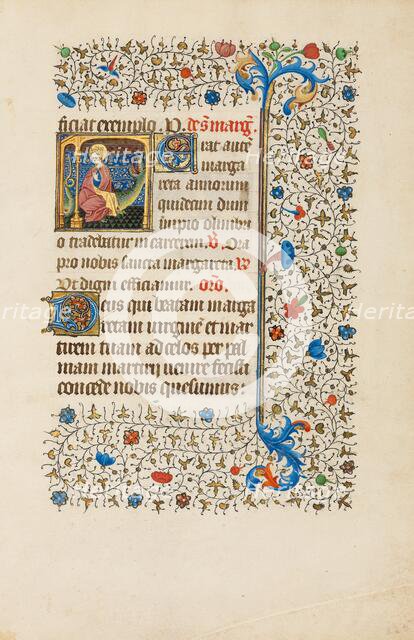 ficiat exemplo. P. De sc̃a marg̃.
Erat autẽ
marga
reta annorum
quindecim dum
impio olimbri
o tradebatur in carcerem. V̷. Ora
pro nobis sancta margareta. R̷
Vt digni efficiamur. Orõ.
Deus qui beatam marga
retam uirginẽ et mar
tirem tuam ad celos per pal
mam martirij uenire fecisti
concede nobis quesumus:
Heritage
Images